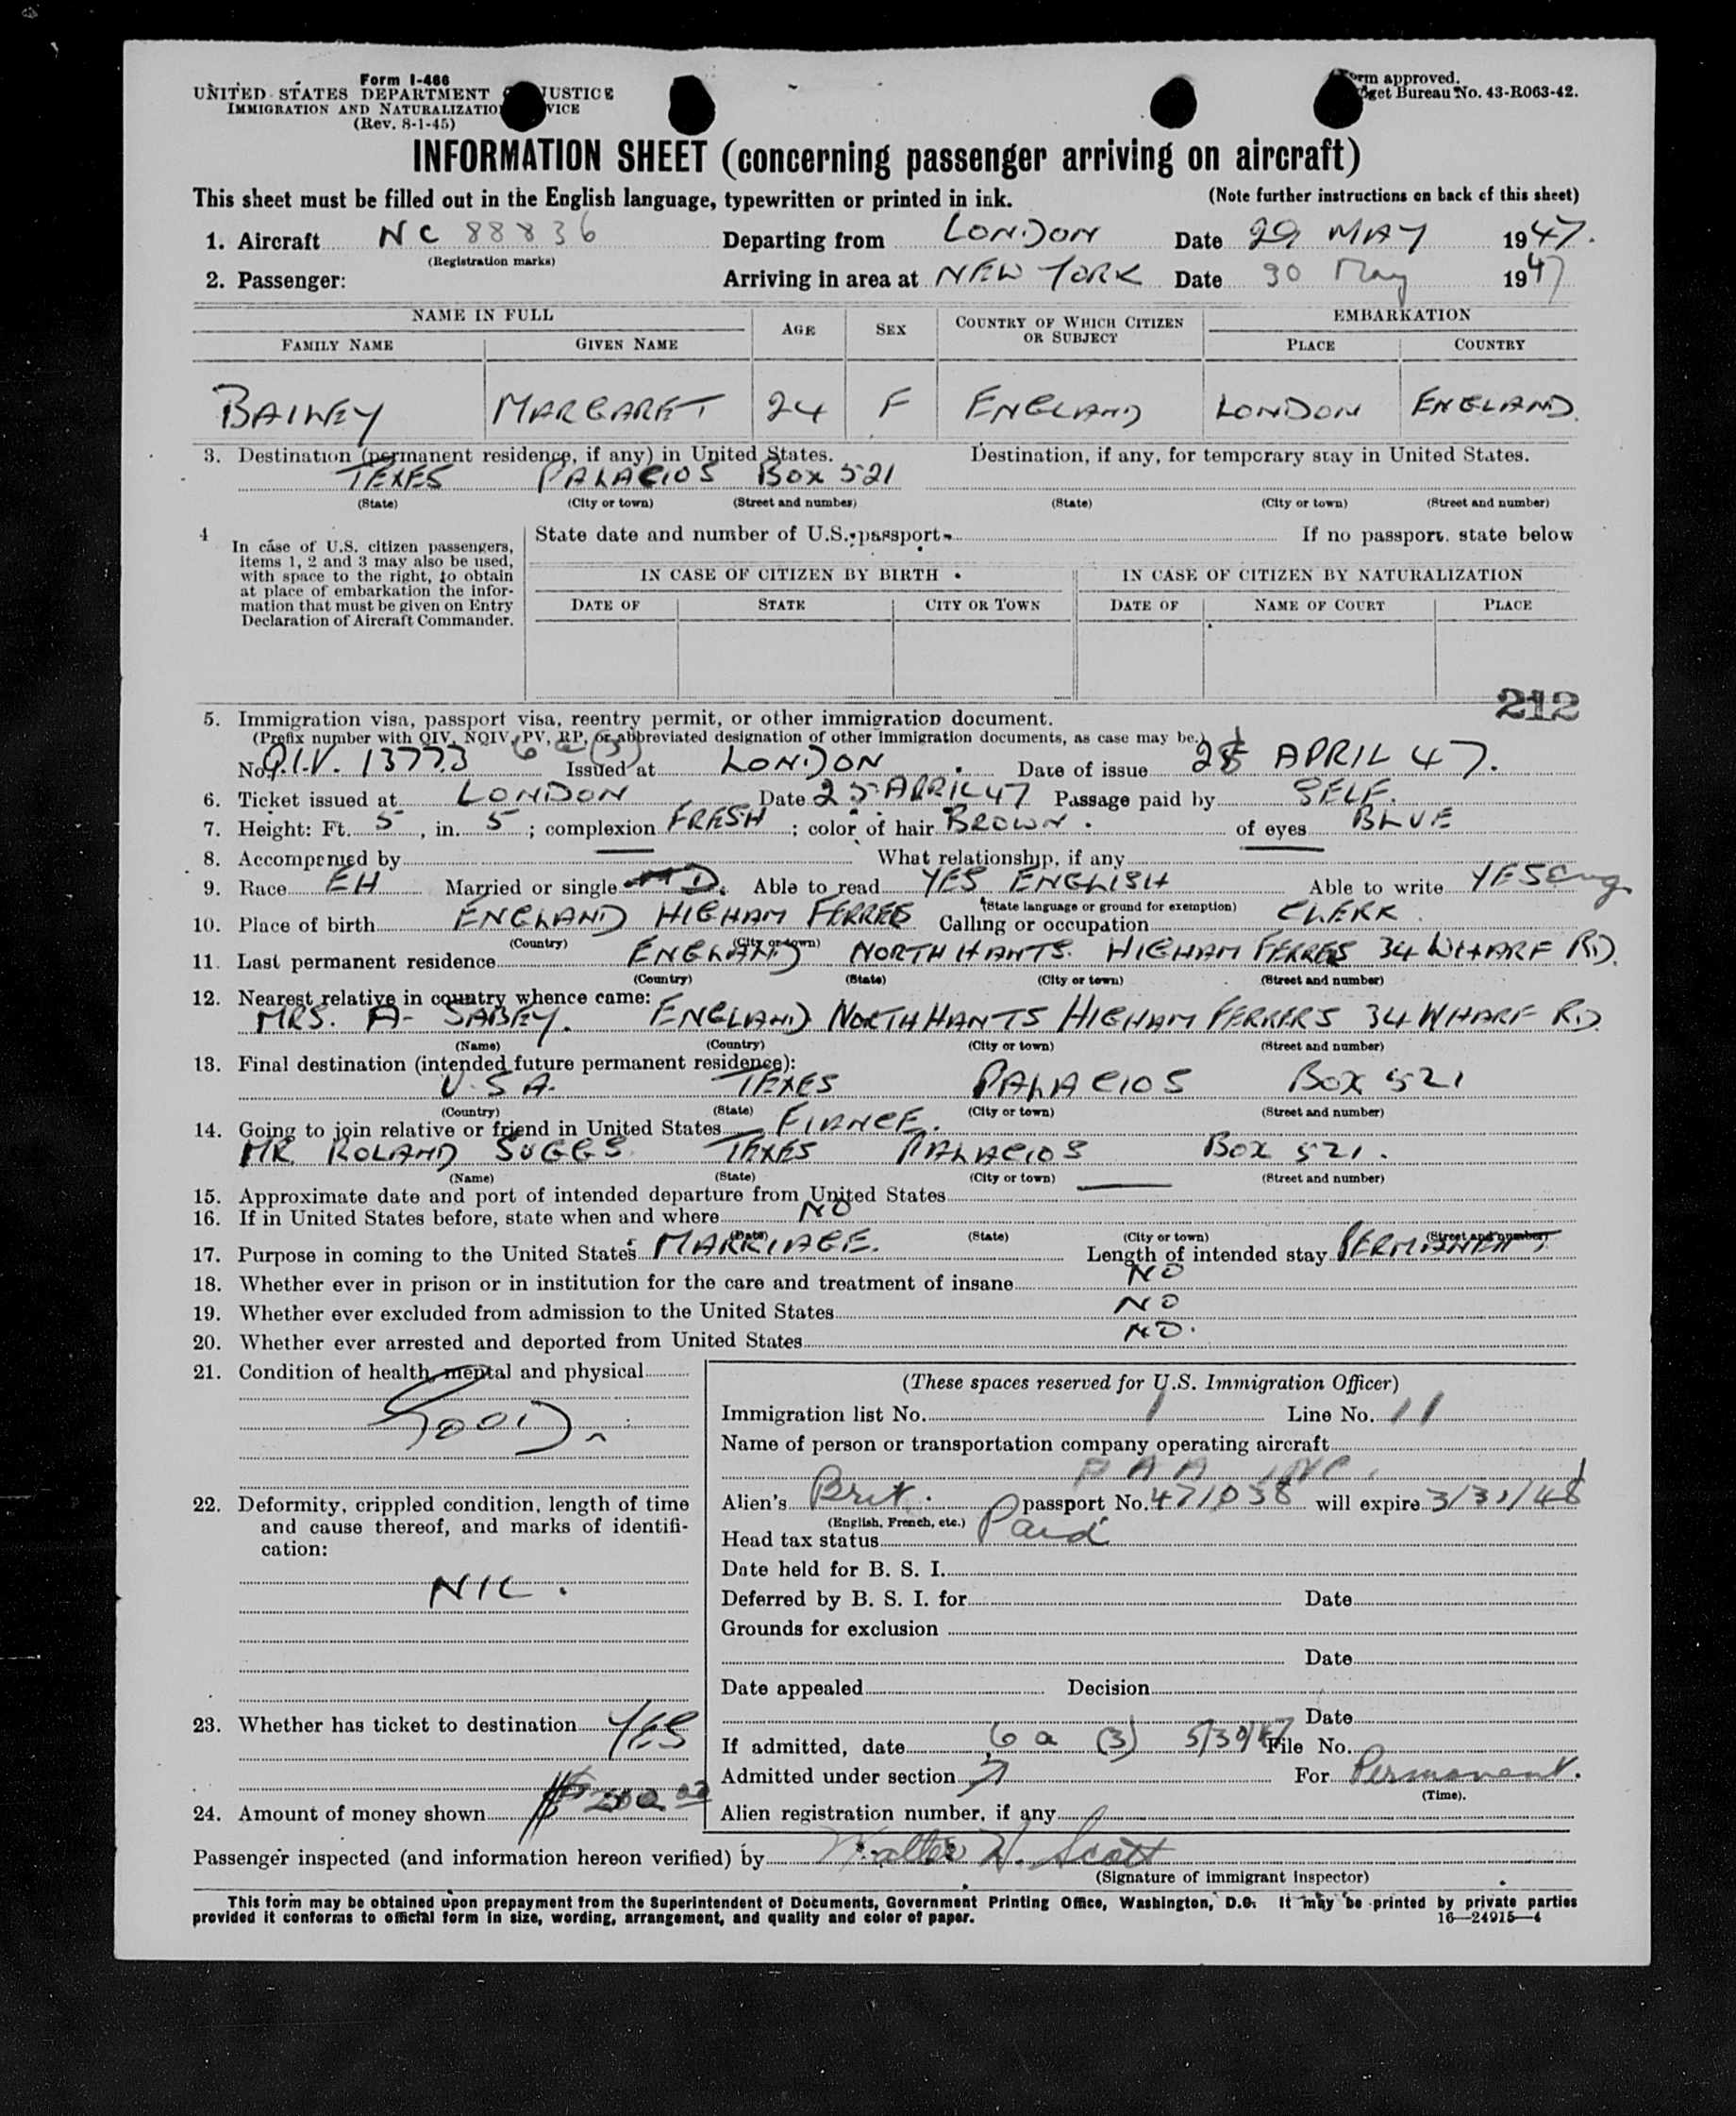 Form I-466
UNITED STATES DEPARTMENT JUSTICE
IMMIGRATION AND NATURALIZATIO VICE
(Rev. 8-1-45)
rm approved.
get Bureau No. 43-R063-42.
INFORMATION SHEET (concerning passenger arriving on aircraft)
This sheet must be filled out in the English language, typewritten or printed in ink. (Note further instructions on back of this sheet)
1. Aircraft NC 88836 Departing from LONDON Date 29 MAY 1947.
(Registration marks)
2. Passenger: Arriving in area at NEW YORK Date 30 May 1947
NAME IN FULL AGE SEX COUNTRY OF WHICH CITIZEN OR SUBJECT EMBARKATION
FAMILY NAME GIVEN NAME PLACE COUNTRY
MARGARET 24 F ENGLAND LONDON ENGLAND.
3. Destination (permanent residence, if any) in United States. Destination, if any, for temporary stay in United States.
TEXES PALACIOS BOX 521
(State) (City or town) (Street and number) (State) (City or town) (Street and number)
4 In case of U.S. citizen passengers, items 1, 2 and 3 may also be used, with space to the right, to obtain at place of embarkation the information that must be given on Entry Declaration of Aircraft Commander.
State date and number of U.S. passport If no passport, state below
IN CASE OF CITIZEN BY BIRTH IN CASE OF CITIZEN BY NATURALIZATION
DATE OF STATE CITY OR TOWN DATE OF NAME OF COURT PLACE
212
5. Immigration visa, passport visa, reentry permit, or other immigration document.
(Prefix number with QIV, NQIV, PV, RP, or abbreviated designation of other immigration documents, as case may be.)
6 a (3)
No. Q.I.V. 13773 Issued at LONDON Date of issue APRIL 47.
6. Ticket issued at LONDON Date 25 APRIL 47 Passage paid by SELF.
7. Height: Ft. 5, in. 5; complexion FRESH; color of hair BROWN. of eyes BLUE
8. Accompanied by — What relationship, if any —
9. Race EH Married or single D. Able to read YES ENGLISH Able to write YES Eng
(State language or ground for exemption)
10. Place of birth ENGLAND HIGHAM FERRES Calling or occupation CLERK.
(Country) (City or town)
11. Last permanent residence ENGLAND NORTHHANTS. HIGHAM FERRES 34 WHARF RD.
(Country) (State) (City or town) (Street and number)
12. Nearest relative in country whence came:
MRS. A- SABEY. ENGLAND NORTHHANTS HIGHAM FERRERS 34 WHARF RD.
(Name) (Country) (City or town) (Street and number)
13. Final destination (intended future permanent residence):
U.S.A. TEXES PALACIOS BOX 521
(Country) (State) (City or town) (Street and number)
14. Going to join relative or friend in United States FIANCE.
MR ROLAND SUGGS TEXES PALACIOS BOX 521.
(Name) (State) (City or town) (Street and number)
15. Approximate date and port of intended departure from United States —
16. If in United States before, state when and where NO
(Date) (State) (City or town) (Street and number)
17. Purpose in coming to the United States MARRIAGE. Length of intended stay PERMANENT.
18. Whether ever in prison or in institution for the care and treatment of insane NO
19. Whether ever excluded from admission to the United States NO
20. Whether ever arrested and deported from United States NO.
21. Condition of health, mental and physical
GOOD.
22. Deformity, crippled condition, length of time
and cause thereof, and marks of identifi-
cation:
NIL.
23. Whether has ticket to destination YES
24. Amount of money shown
(These spaces reserved for U.S. Immigration Officer)
Immigration list No. 1 Line No. 11
Name of person or transportation company operating aircraft
P A A INC.
Alien's Brit. passport No. 471038 will expire 3/31/48
(English, French, etc.)
Head tax status Paid
Date held for B. S. I.
Deferred by B. S. I. for Date
Grounds for exclusion
Date
Date appealed Decision
Date
If admitted, date 6 a (3) 5/30/47 File No.
Admitted under section For Permanent.
(Time).
Alien registration number, if any
Passenger inspected (and information hereon verified) by Walter W. Scott
(Signature of immigrant inspector)
This form may be obtained upon prepayment from the Superintendent of Documents, Government Printing Office, Washington, D.C. It may be printed by private parties
provided it conforms to official form in size, wording, arrangement, and quality and color of paper. 16—24915—4